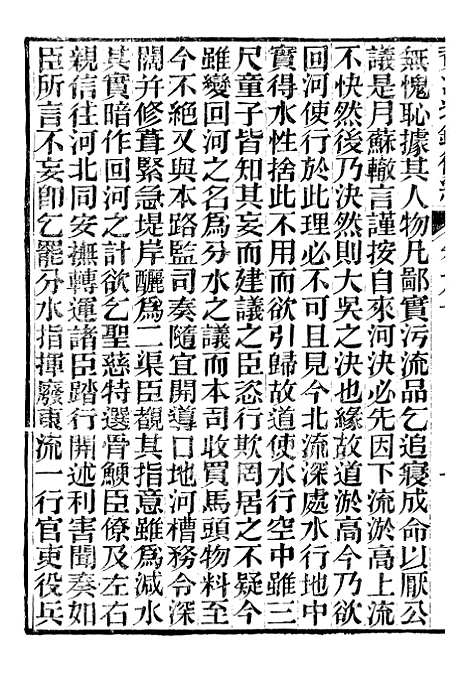 無愧恥據其人物凡鄙實污流品乞追寢成命以厭公
議是月蘇轍言謹按自來河決必先因下流淤高上流
不快然後乃決然則大吳之決也緣故道淤高今乃欲
回河使行於此理必不可且見今北流深處水行地中
實得水性捨此不用而欲引歸故道使水行空中雖三
尺童子皆知其妄而建議之臣恣行欺罔居之不疑今
雖變回河之名爲分水之議而本司收買馬頭物料至
今不絕又與本路監司奏隨宜開導口地河槽務令深
闊并修葺緊急堤岸釃爲二渠臣觀其指意雖爲減水
其實暗作回河之計欲乞聖慈特選骨鯁臣僚及左右
親信往河北同安撫轉運諸臣踏行開述利害聞奏如
臣所言不妄卽乞罷分水指揮廢東流一行官吏役兵